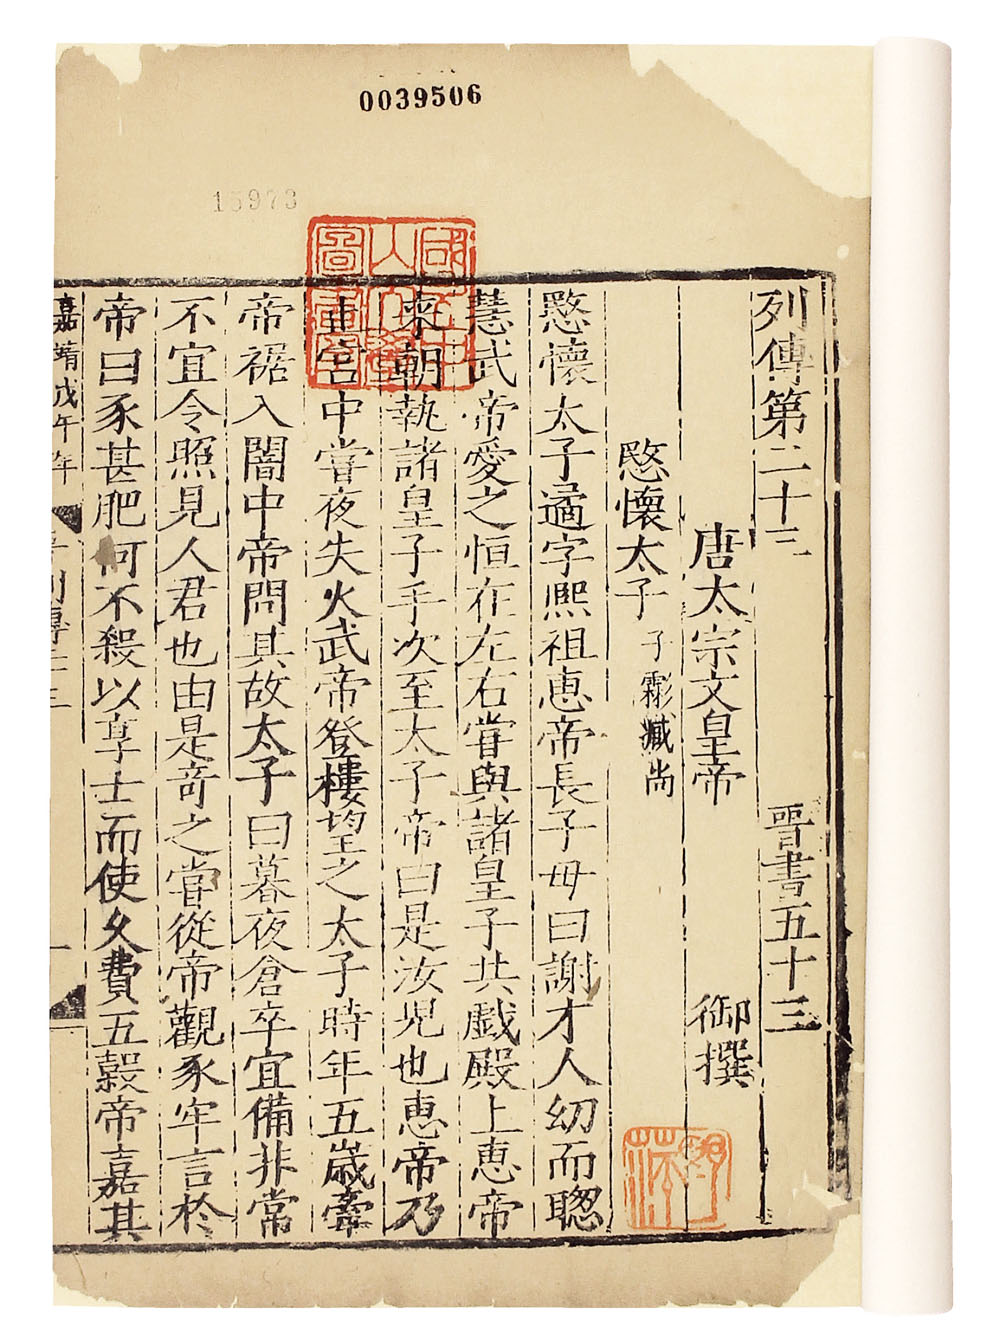 0039506
15973
列傳第二十三 晉書五十三
唐太宗文皇帝 御撰
愍懷太子 子虨臧尚
愍懷太子遹字熈祖恵帝長子母曰謝才人幼而聦
慧武帝愛之恒在左右嘗與諸皇子共戯殿上恵帝
來朝執諸皇子手次至太子帝曰是汝児也恵帝乃
止宫中嘗夜失火武帝登樓望之太子時年五歲牽
帝裾入闇中帝問其故太子曰暮夜倉卒宜備非常
不宜令照見人君也由是竒之嘗從帝觀豕牢言於
帝曰豕甚肥何不殺以享士而使久費五穀帝嘉其
嘉靖戊午年
列傳二十三